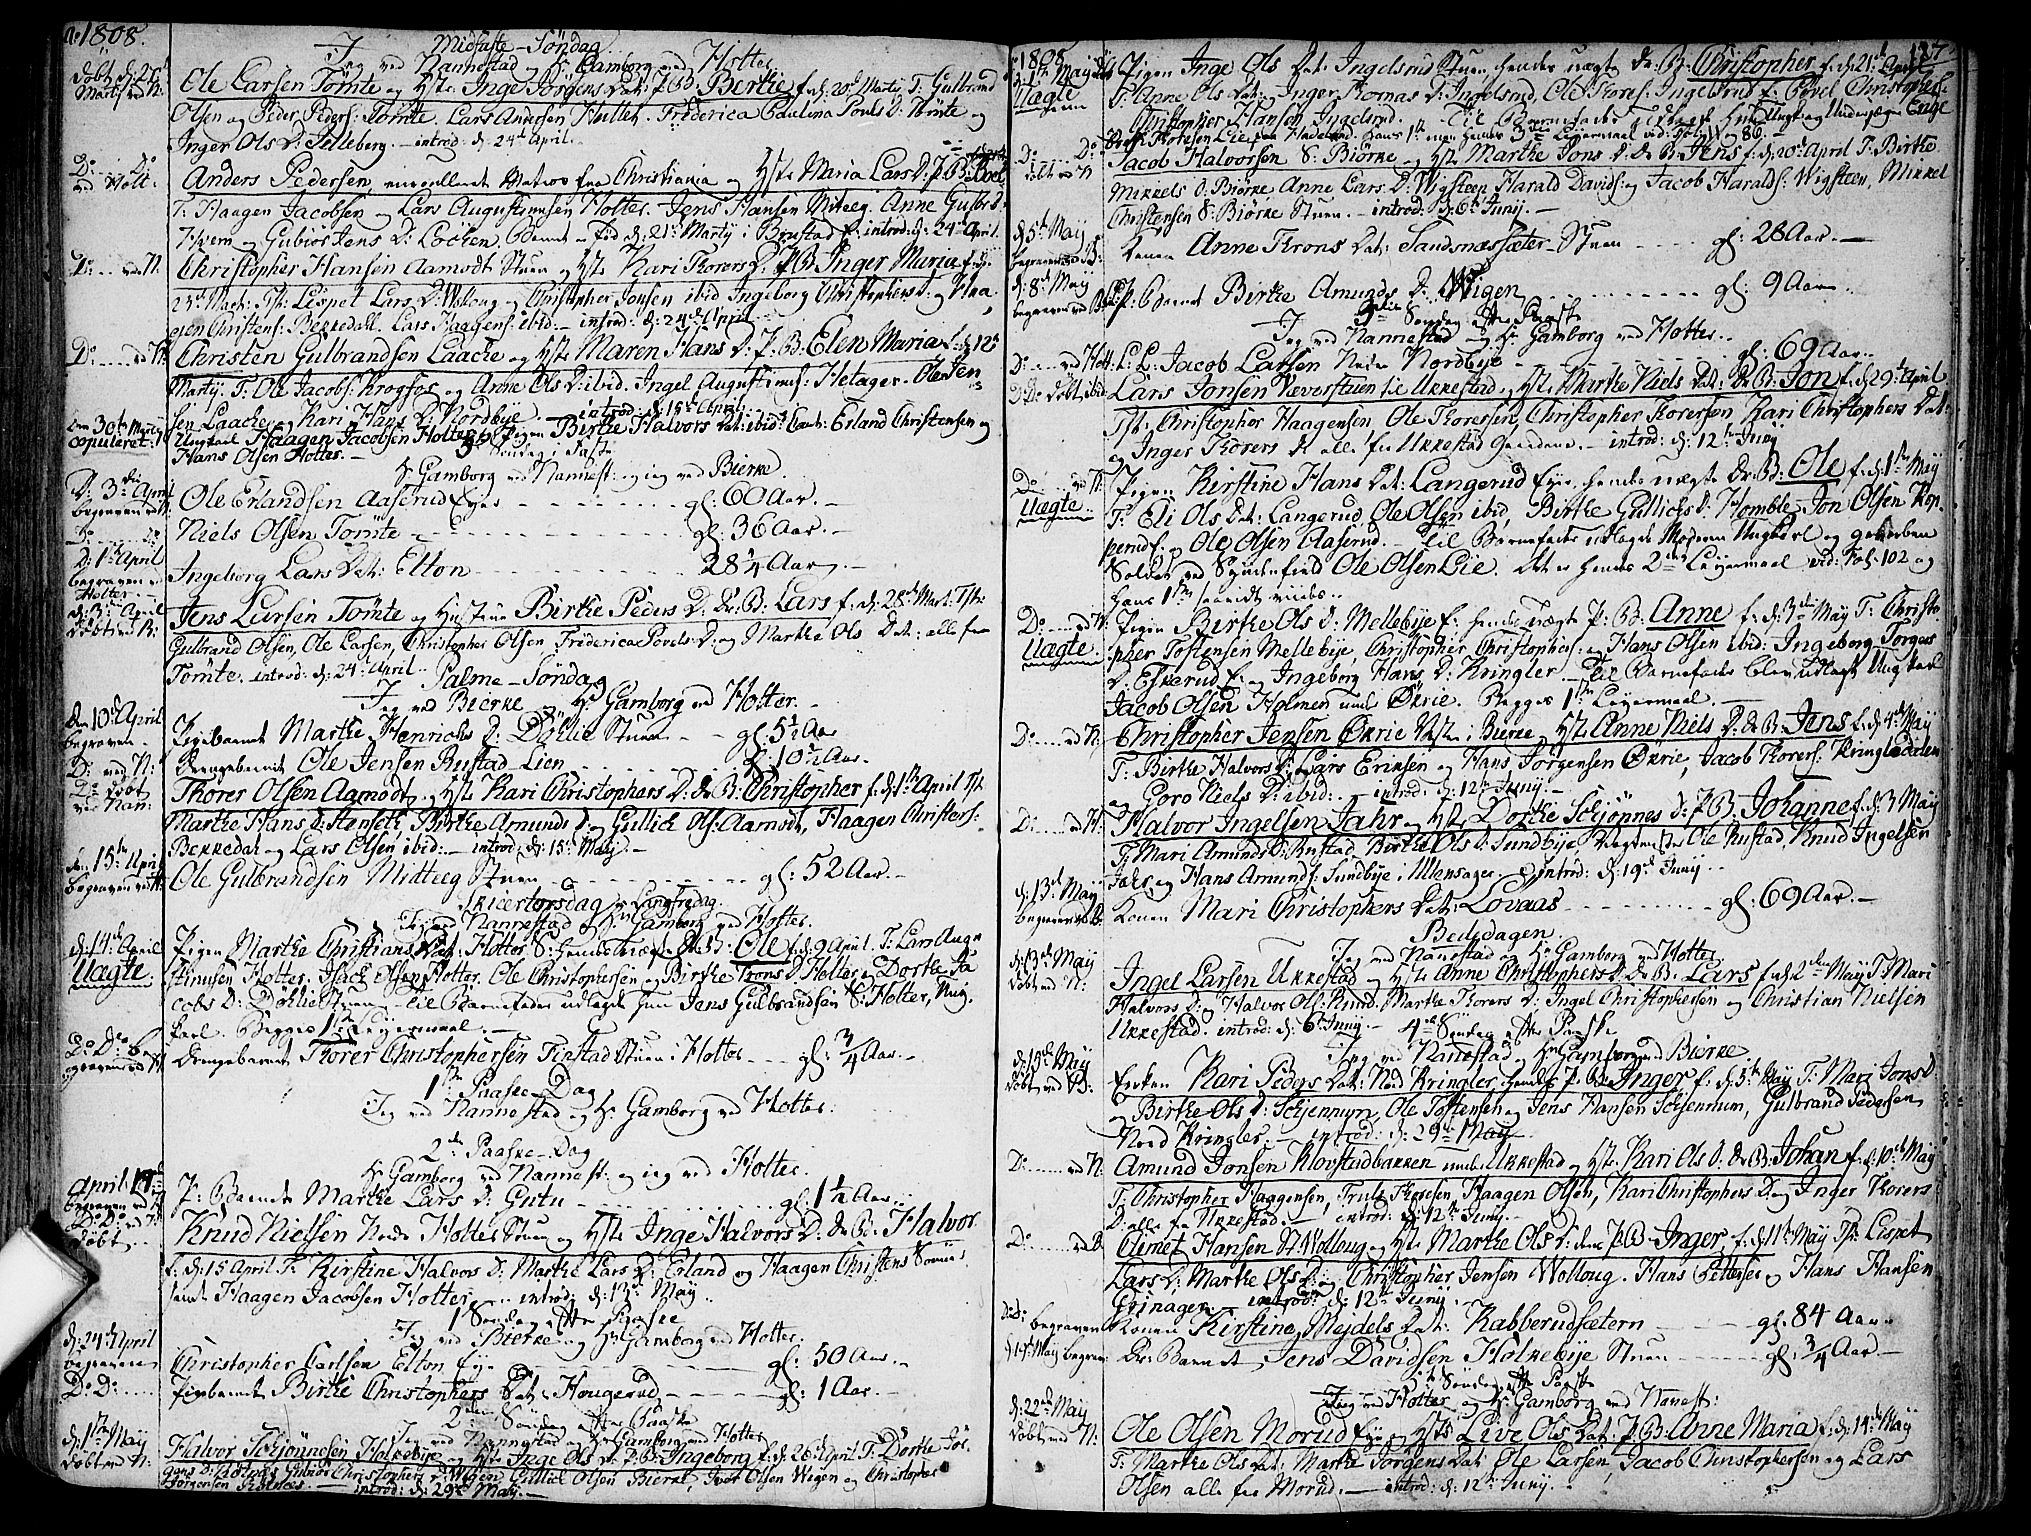 Ao 1808.
Midfaste-Søndag
Jeg ved Nannestad og Hr Gamborg ved Holter
døbt d: 27de Martij ved N: Ole Larsen Tømte og Hste Inge Jørgens Dat: P. B. Birthe f. d. 20de Martij T: Gulbrand
Olsen og Peder Peders: Tømte. Lars Andersen Holter. Friderica Paulina Povels D: Tømte og
Inger Ols D: Selleberg. - introd: d: 24de April.
Do ... Do ved Holt: Anders Pedersen, enroulleret Matros fra Christiania og Hste Maria Lars D. P. B.
T: Haagen Jacobsen og Lars Augustinusen Holter. Jens Hansen Mitteeg. Anne Gulbr: D:
Hvem og Gubiør Jens D: Løchen. Barnet er fød d: 21de Martij i Brustad E. introd: d: 24de April.
Do ... ved N. Christopher Hansen Aamodt Stuen og Hste Kari Thorers D. P. B. Inger Maria f. d:
23de Mart: Tst: Lispet Lars D: Wolloug og Christopher Jonsen ibid. Ingeborg Christophers D: og
Christens: Bekkedall. Lars Haagens: ibid. - introd: d: 24de April
Do ... ved N: Christen Gulbrandsen Laache og Hste Maren Hans D: P. B. Elen Maria f. d. 12te
Martij. T: Ole Jacobs: Krogfos og Anne Ols D: ibid. Ingel Augustinus: Hetager. Ole Jen
sen Laache og Kari Hans D: Nordbye. introd: d: 15de April
Den 30te Martij copuleret: Ungkarl Haagen Jacobsen Holter og Pigen Birthe Halvors Dat: ibid: Caut: Erland Christensen og
Hans Olsen Holter. -
5te Søndag i Faste
Hr Gamborg ved Nannest: og jeg ved Bierke.
D: 3die April begraven ved N. Ole Erlandsen Aaserud Eyer - - - gl: 60 Aar. -
Do ... Do Niels Olsen Tømte - - - gl: 36 Aar. -
D: 1ste April begraven ved Holter - Ingeborg Lars Dat: Elton - - - 28 1/4 Aar. -
d: 3die April døbt ved B: Jens Larsen Tømte og Hustrue Birthe Peders D: Dr: B: Lars f: d: 28de Mart: Tst:
Gulbrand Olsen, Ole Larsen, Christopher Olsen Friderica Povels D: og Marthe Ols Dat: alle fra
Tømte. introd: d: 24de April.
Palme-Søndag
Jeg ved Bierke og Hr Gamborg ved Holter.
den 10de April begraven - Pigebarnet Marthe Henrichs D: Døhlie Stuen - - gl: 5 1/2 Aar
Do ved N: Drengebarnet Ole Jensen Rustad Lien - - - gl: 10 1/2 Aar.
Do døbt ved Nan: Thorer Olsen Aamodt og Hste Kari Christophers D: Dr. B: Christopher f. d: 1ste April Tst:
Marthe Hans D: Hanseth, Birthe Amunds D: og Gullich Ols: Aamodt, Haagen Christens:
Bekkedal og Lars Olsen ibid: - introd: d: 15de Maij. -
den 15de April begraven ved N: Ole Gulbrandsen Midteeg Stuen - - - gl: 52 Aar. -
Skiertorsdag og Langfredag.
Jeg ved Nannestad og Hr Gamborg ved Holter.
d: 14de April Uægte. Pigen Marthe Christians Dat: Holter S: hendes uægte Dr: B: Ole f: d 9 April. T: Lars Augu
stinusen Holter. Isach Olsen Holter. Ole Christophersen og Birthe Trons D: Holter og Dorthe Ja
cobs D: Døhlie Stuen. Til Barnefader udlagde hun Jens Gulbrandsen S: Holter, Ung
karl. Begges 1ste Leyermaal. -
Do Do begraven ved N. Drengebarnet Thorer Christophersen Finstad Stuen i Holter - - gl: 3/4 Aar. -
1ste Paaske-Dag
Jeg ved Nannestad og Hr Gamborg ved Holter.
2den Paaske-Dag
Hr Gamborg ved Nannest: og jeg ved Holter.
April 17de begraven ved N P: Barnet Marthe Lars D: Gutu - - - gl: 1 1/2 Aar -
Do Do ved H: døbt - Knud Nielsen Nedre Holter Stuen og Hste Inge Halvors D: Dr. B: Halvor
f: d: 15 April T: Kirstine Halvors D: Marthe Lars D: Erland og Haagen Christens
samt Haagen Jacobsen Holter. introd: d: 15de May.
1 Søndag efter Paaske
Jeg ved Bierke og Hr Gamborg ved Holter.
d: 24de April begraven Christopher Carlsen Elton Eye - - - gl: 50 Aar. -
Do Do ... Pigebarnet Birthe Christophers Dat: Hougerud - - - gl: 1 Aar. -
2den Søndag efter Paaske
Jeg ved Nannestad og Hr Gamborg ved Holter
d: 1ste Maij døbt ved N: Halvor Schiønnesen Holkebye og Hste Inge Ols D: P: B: Ingeborg f. d: 26de April T: Dorthe Jør
gens D: Holtnes Gubiør Christophers D: Wigen Gullich Olsen Bierke, Iver Olsen Wigen og Christopher
Jørgensen Holtnes. - introd: d: 29de Maij. -
1808
137
d: 1ste May Uægte Pigen Inge Ols Dat: Ingelsrud Stuen hendes uægte Dr: B: Christopher f. d: 21de April
T: Anne Ols Dat: Inger Thomas D: Ingelsrud, Ole Thores: Ingelsrud E: Povel Christophers:
Christopher Hansen Ingelsrud. - Til Barnefader udlagde hun Ungk: og Underjæger
Thoresen Lie fra Hadeland. hans 1ste men hendes 3die Leyermaal vid: Fol: 11 og 86. -
Do ... Do døbt ved N Jacob Halvorsen S: Biørke og Hste Marthe Jons D: Dr. B: Jens f: d: 20de April T: Birthe
Mikkels D: Biørke Anne Lars D: Wigsteen Harald Davids: og Jacob Haralds: Wigsteen, Mikkel
Christensen S: Biørke Stuen. - introd: d: 6te Junij. -
d: 5te Maij begraven ved Konen Anne Throns Dat: Sandsnessæter-Stuen - - - gl: 26 Aar. -
d: 8de May begraven ved P: Barnet Birthe Amunds D: Wigen - - - gl: 9 Aar.
3die Søndag efter Paaske
Jeg ved Nannestad og Hr Gamborg ved Holter.
Do ... ved Holt: L: L: Jacob Larsen Nedre Nordbye - - - gl: 69 Aar.
Do Do døbt ibid: Lars Jonsen Væverstuen til Ukkestad og Hste Marthe Niels Dat: Dr. B: Jon f: d: 29de April
Tst: Christopher Haagensen, Ole Thoresen, Christopher Thorersen Kari Christophers Dat:
og Inger Thorers D: alle fra Ukkestad Gaardene. - introd: d: 12te Junij
Do ... ved N: Uægte. Pigen Kirstine Hans Dat: Langerud Eye hendes uægte Dr: B: Ole f: d: 1ste Maij
T: Eli Ols Dat: Langerud Ole Olsen ibid, Birthe Gullichs D: Homble, Jon Olsen Kop
perud E. og Ole Olsen Aaserud. - Til Barnefader udlagde Moderen Ungkarl og geworben
Soldat ved Syndenfield Ole Olsen Lie. Det er hendes 2det Leyermaal vid: Fol: 102 og
hans 1ste saavidt vides.
Do ... ved N: Uægte. Pigen Birthe Ols D: Mellebye E: hendes uægte P: B: Anne f: d: 3die May T: Christo
pher Tostensen Mellebye, Christopher Christophers: og Hans Olsen ibid: Ingeborg Torgers
D: Eskerud E: og Ingeborg Hans D: Kringler. - Til Barnefader blev udlagt Ungkarl
Jacob Olsen Holmen under Økrie. Begges 1ste Leyermaal. -
Do ... ved N: Christopher Jensen Økrie Østre i Bierke og Hste Anne Niels D: Dr. B: Jens f: d: 4de May
T: Birthe Halvors D: Lars Eriksen og Hans Jørgensen Økrie, Jacob Thorers: Kringledalen
og Goro Niels D: ibid: - introd: d: 12te Junij. -
Do ... ved N: Halvor Ingelsen Jahr og Hste Dorthe Schjønnes D: P. B. Johanne f: d: 3 May
T: Mari Amunds D: Rustad Birthe Ols D: Sundbye, Ole Rustad, Knud Ingelsen
Jahr og Hans Amunds: Sundbye i Ullensager. introd: d: 19de Junij.
d: 13de May begraven ved B. Konen Mari Christophers Dat: Lovaas - - - gl: 69 Aar. -
Bededagen.
Jeg ved Nannestad og Hr Gamborg ved Holter
d: 13de Maij døbt ved N: Ingel Larsen Ukkestad og Hste Anne Christophers D: Dr. B: Lars f: d: 2den May T: Mari
Halvors D: og Halvor Ols: Ruud. Marthe Thorers D: Ingel Christophersen og Christian Nielsen
Ukkestad. introd: d: 6te Junij. -
4de Søndag efter Paaske
Jeg ved Nannestad og Hr Gamborg ved Bierke.
d: 15de Maij døbt ved B: Enken Kari Peders Dat: Nord Kringler hendes P: B: Inger f: d: 5te May T: Mari Jons D:
og Birthe Ols D: Schjennum, Ole Tostensen og Jens Hansen Schjennum, Gulbrand Pedersen
Nord Kringler. - introd: d: 29de May -
Do ... ved N: Amund Jonsen Klovstadbakken under Ukkestad og Hste Kari Ols D: Dr. B: Johan f: d: 10de May
T: Christopher Haagensen, Truls Thoresen, Haagen Olsen, Kari Christophers D: og Inger Thorers
D: alle fra Ukkestad. - introd: d: 12te Junij. -
Do ... ved B Clemet Hansen N: Wolloug og Hste Marthe Ols D: deres P. B. Inger f: d: 11te May Tst: Lispet
Lars D: Marthe Ols D: og Christopher Jensen Wolloug. Hans Petterse og Hans Hansen
Grinager. introd: d: 12te Junij.
Do: Do: begraven Konen Kirstine Mejdels Dat: Kabberudsætern - - - gl: 84 Aar.
d: 17de May begraven Dr: Barnet Jens Davidsen Holkebye Stuen - - - gl: 3/4 Aar. -
5te Søndag efter Paaske
Jeg ved Holter og Hr Gamborg ved Nannest:
d: 22de May døbt ved N: Ole Olsen Morud Eye og Hste Live Ols Dat: P. B. Anne Maria f: d: 14de May
T: Marthe Ols Dat: Marthe Jørgens Dat: Ole Larsen, Jacob Christophersen og Lars
Olsen alle fra Morud. - introd: d: 12te Junij. -